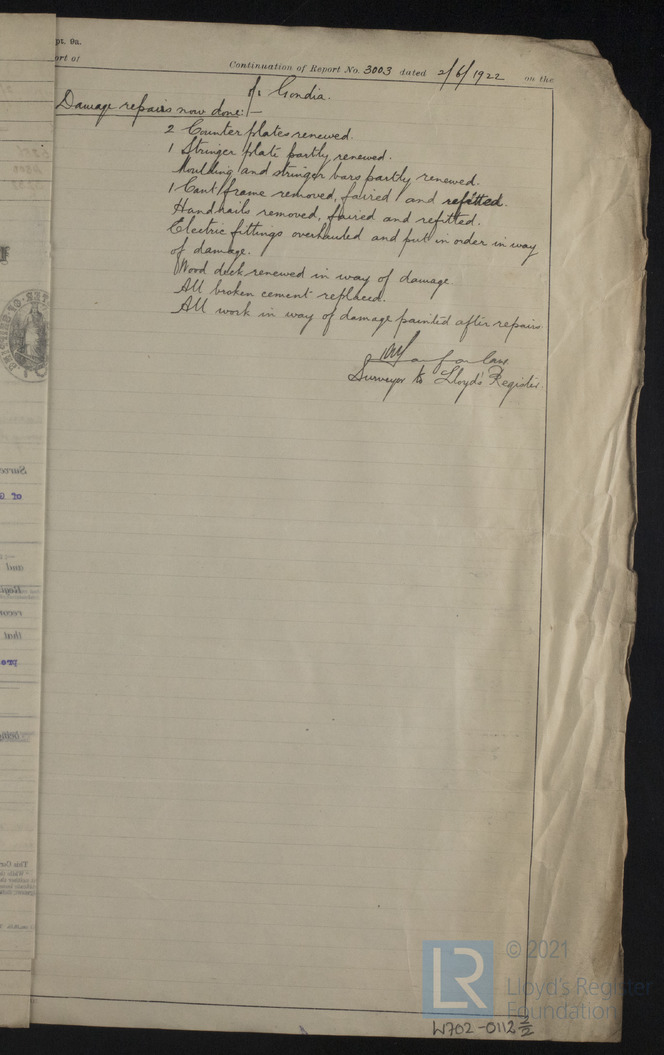 pt. 9a.
ort of
Continuation of Report No. 3003 dated 2/6/1922 on the
Gondia.
Damage repairs now done:—
2 Counter plates renewed.
1 Stringer plate partly renewed.
Moulding and stringer bars partly renewed.
1 Cant frame removed, faired and refitted.
Handrails removed, faired and refitted.
Electric fittings overhauled and put in order in way
of damage.
Wood deck renewed in way of damage
All broken cement replaced.
All work in way of damage painted after repairs
Surveyor to Lloyd's Register.
LR
© 2021
Lloyd's Register
Foundation
W702-0112 2/2